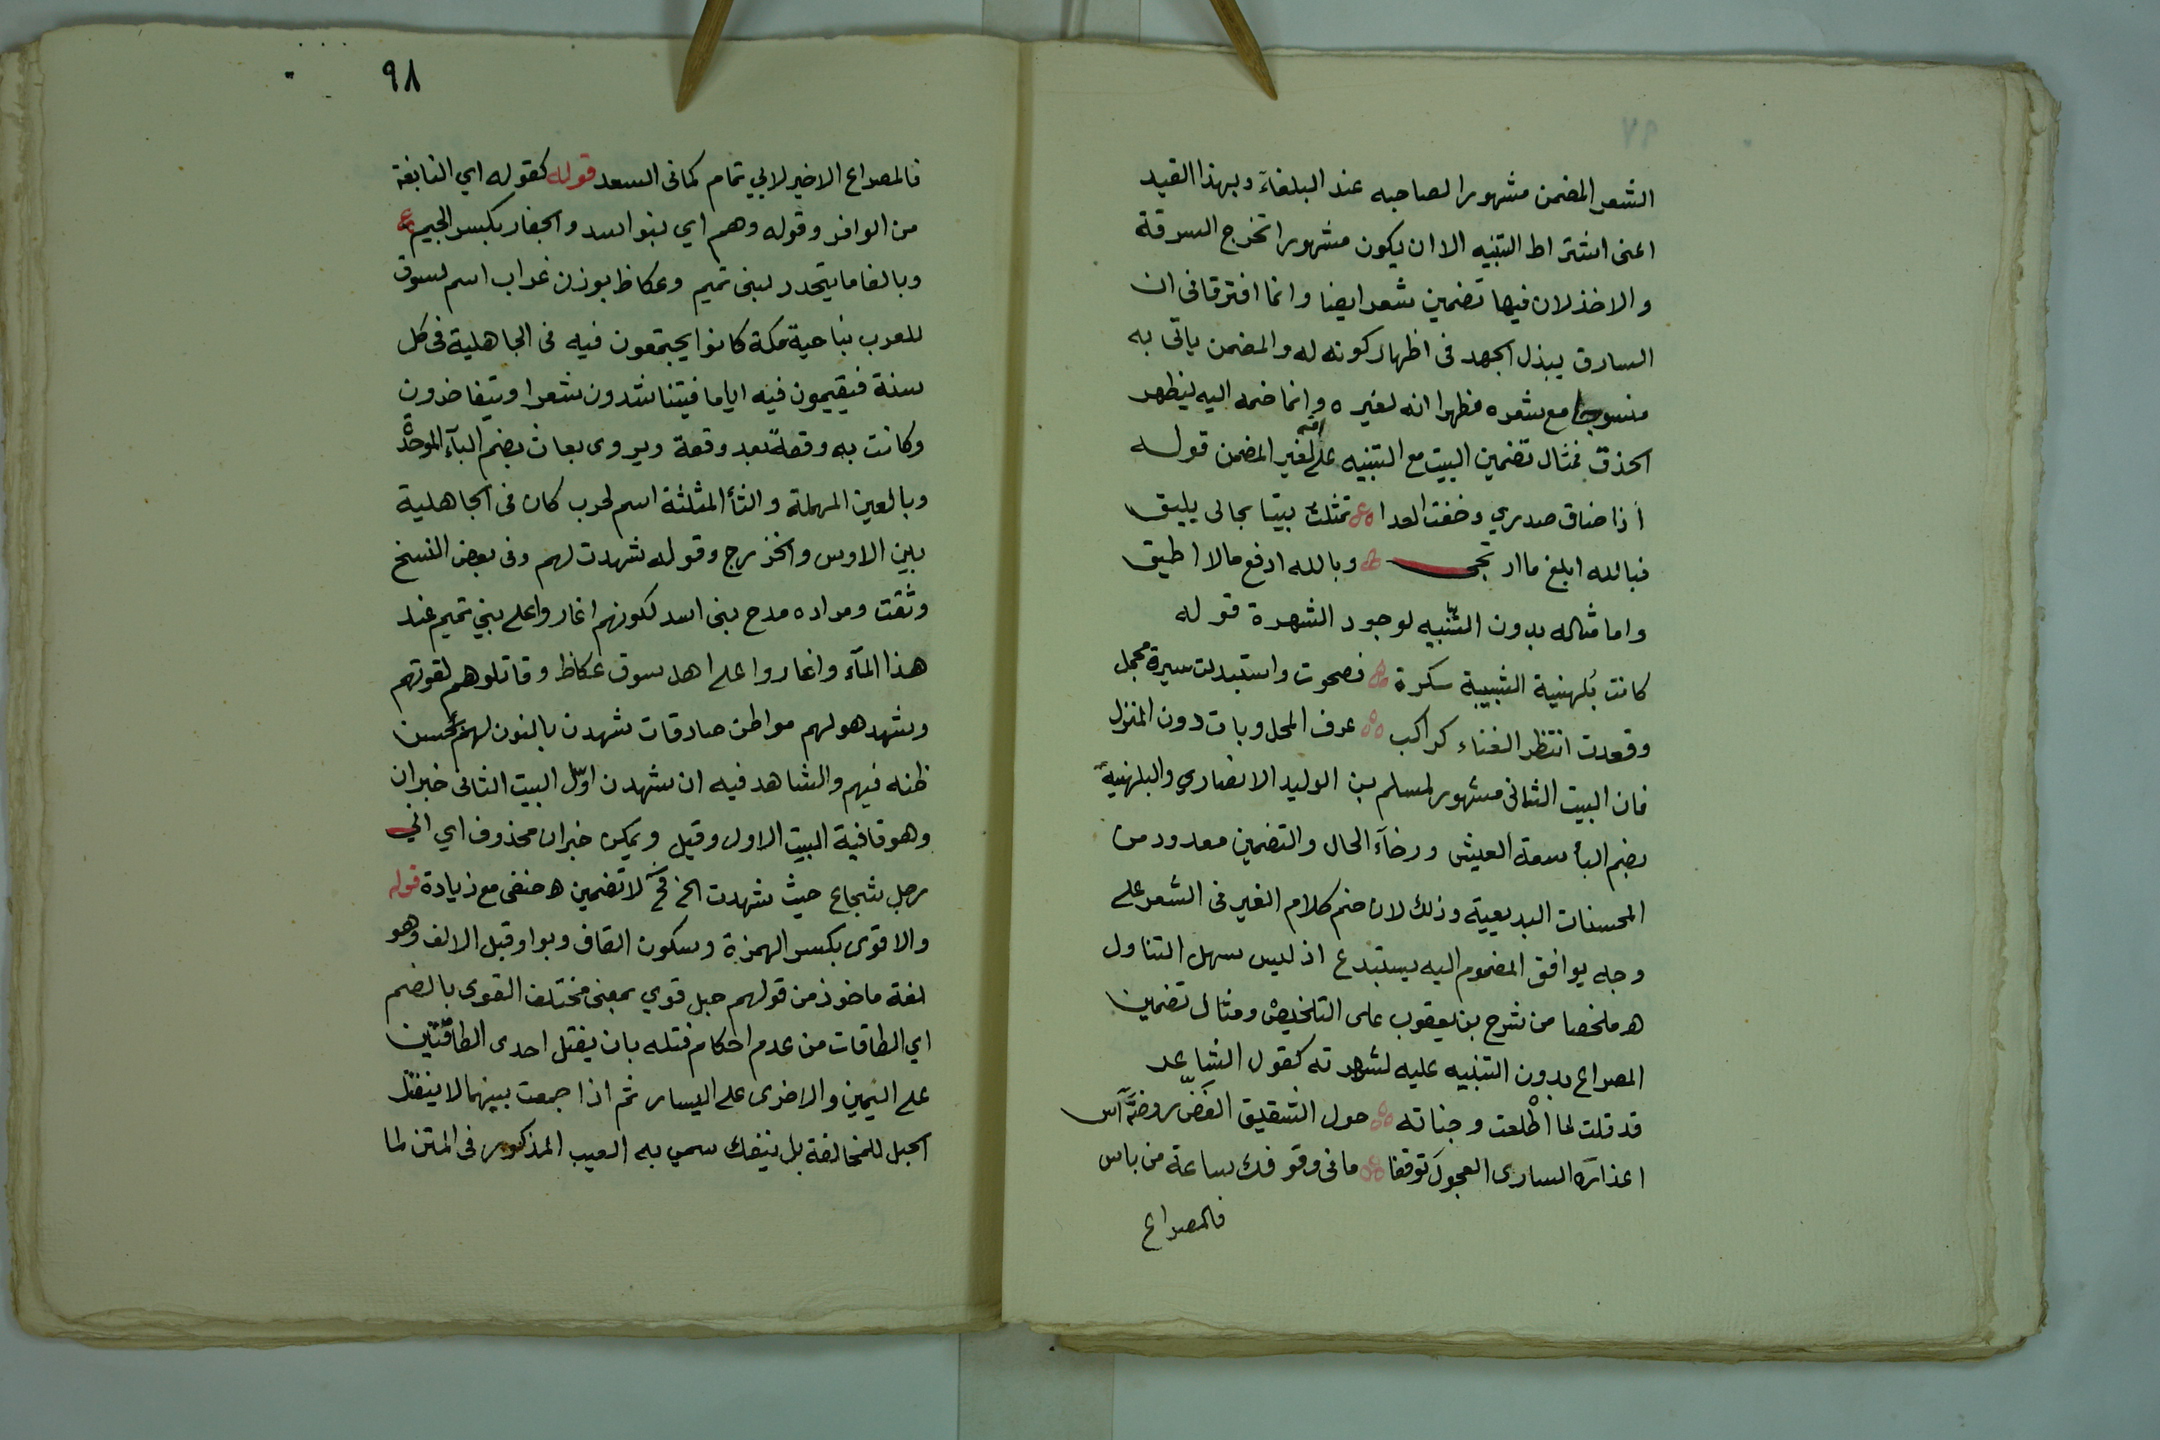 الشعر المضمن مشهورا لصاحبه عند البلغآء وبهذا القيد
اعنى اشتراط التنبيه الا ان يكون مشهورا تخرج السرقة
والاخذ لان فيها تضمين شعر ايضا وانما افترقا فى ان
السارق يبذل الجهد فى اظهار كونه له والمضمن ياتى به
منسوجا مع شعره مظهرا انه لغيره وانما ضمه اليه ليظهر
الحذق فمثال تضمين البيت مع التنبيه على انه لغير المضمن قوله
اذا ضاق صدري وخفت العدا تمثلت بيتا بحالى يليق
فبالله ابلغ ما ارتجى وبالله ادفع مالا اطيق
واما مثاله بدون التنبيه لوجود الشهرة قوله
كانت بُلهنية الشبيبة سكرة فصحوت واستبدلت سيرة مجمل
وقعدت انتظر الفناء كراكب عرف المحل وبات دون المنزل
فان البيت الثانى مشهور لمسلم بن الوليد الانصاري والبلهنية
بضم البأ سعة العيش ورخآء الحال والتضمين معدود من
المحسنات البديعية وذلك لان ضم كلام الغير فى الشعر على
وجه يوافق المضموم اليه يستبدع اذ ليس سهل التناول
ه ملخصا من شرح بن يعقوب على التلخيص ومثال تضمين
المصراع بدون التنبيه عليه لشهرته كقول الشاعر
قد قلت لما اطْلعت وجناته حول الشقيق الغَضّ روضَة آس
اعذاره السارى العجول توقفا مافى وقوفك ساعة من باس
فالمصراع
٩٨
فالمصراع الاخير لابي تمام كمافى السعد قوله كقوله اي النابغة
من الوافر وقوله وهم اي بنو اسد والجفار بكسر الجيم
وبالفا ما يتحدر لبنى تميم وعكاظ بوزن غراب اسم لسوق
للعرب بناحية مكة كانوا يجتمعون فيه فى الجاهلية فى كل
سنة فيقيمون فيه اياما فيتناشدون شعرا ويتفاخرون
وكانت به وقعةً بعد وقعة ويروى بعاث بضم البآء الموحدة
وبالعين المهملة والثأ المثلثة اسم لحرب كان فى الجاهلية
بين الاوس والخزرج وقوله شهدت لهم وفى بعض النسخ
وثقت ومراده مدح بنى اسد لكونهم اغاروا على بني تميم عند
هذا المآء واغاروا على اهل سوق عكاظ وقاتلوهم لقوتهم
وشهد هو لهم مواطن صادقات شهدن بالنون لهم بحسن
ظنه فيهم والشاهد فيه ان شهدن اوّل البيت الثانى خبر ان
وهو قافية البيت الاول وقيل ويمكن خبر ان محذوف اي انى
رجل شجاع حيث شهدت الخ فح لا تضمين ه حنفى مع زيادة قوله
والاقوى بكسر الهمزة وسكون القاف وبواو قبل الالف وهو
لغة ماخوذ من قولهم حبل قوي بمعنى مختلف القوى بالضم
اي الطاقات من عدم احكام فتله بان يفتل احدى الطاقتين
على اليمين والاخرى على اليسار ثم اذا جمعت بينهما لا ينفتل
الحبل للمخالفة بل ينفك سمي به العيب المذكور فى المتن لما